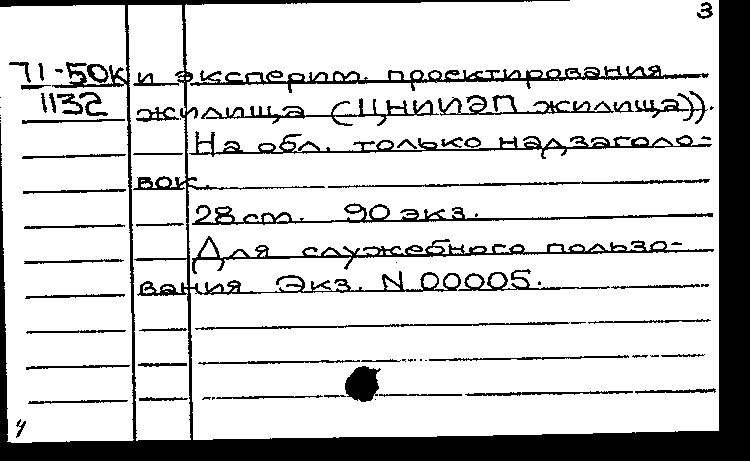 3
71-50к и эксперим. проектирования
1132 жилища (ЦНИИЭП жилища)).
На обл. только надзаголо-
вок.
28 cm. 90 экз.
Для служебного пользо-
вания Экз. N 00005.